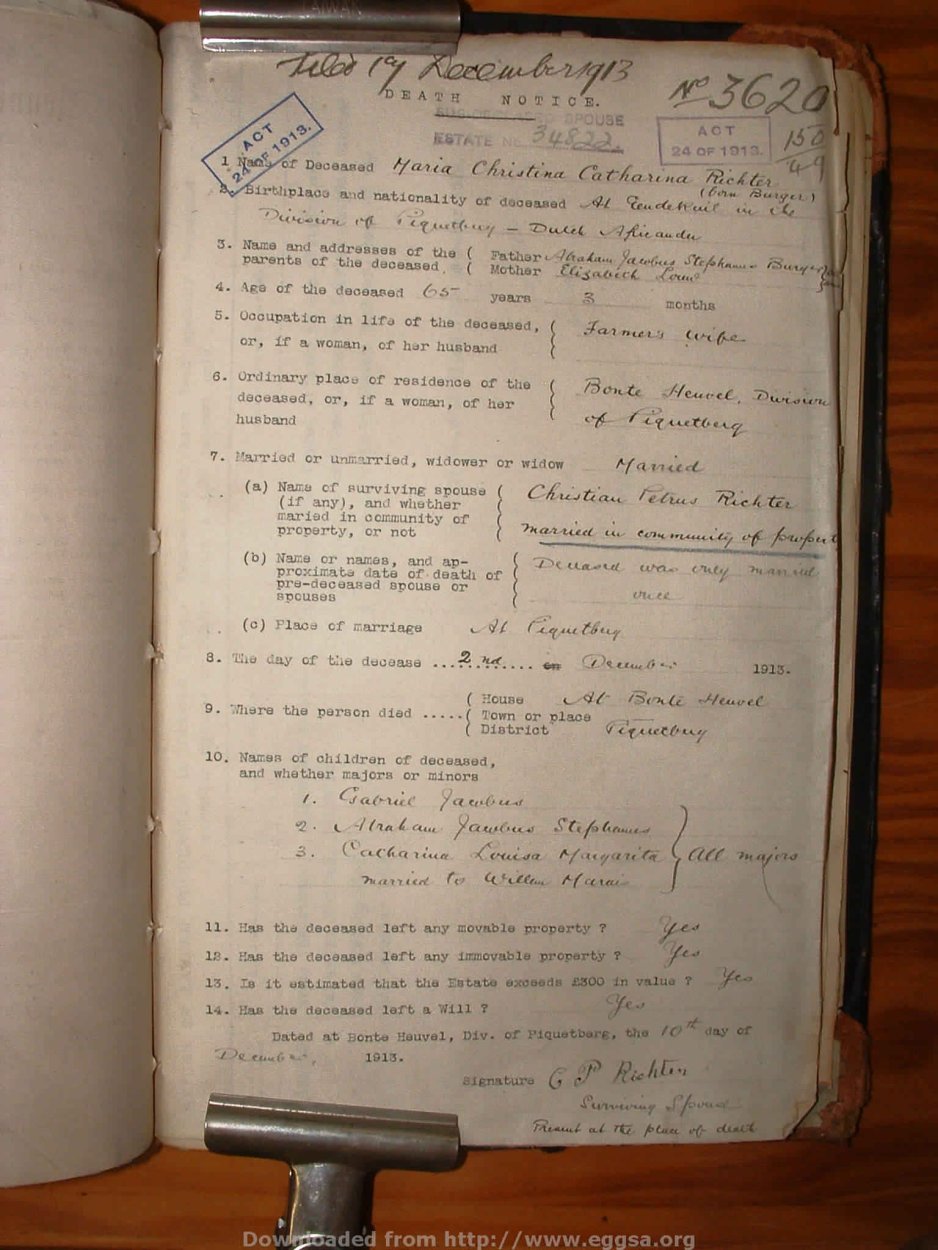 TAIWAN
Filed 19 December 1913
No 3620
DEATH NOTICE.
SPOUSE
ESTATE No. 34822
ACT
24 OF 1913.
ACT
24 OF 1913.
150
49
1 Name of Deceased Maria Christina Catharina Richter
(born Burger)
2. Birthplace and nationality of deceased At Leudekuil in the
Division of Piquetberg — Dutch Africander
3. Name and addresses of the ( Father Abraham Jacobus Stephanus Burger
parents of the deceased. ( Mother Elizabeth Louw
4. Age of the deceased 65 years 3 months
5. Occupation in life of the deceased, ( Farmer's wife
or, if a woman, of her husband
6. Ordinary place of residence of the ( Bonte Heuvel, Division
deceased, or, if a woman, of her
husband of Piquetberg
7. Married or unmarried, widower or widow Married
(a) Name of surviving spouse ( Christian Petrus Richter
(if any), and whether
maried in community of
property, or not married in community of propert
(b) Name or names, and ap-
proximate date of death of
pre-deceased spouse or
spouses
Deceased was only married
once
(c) Place of marriage At Piquetberg
8. The day of the decease ... 2nd .... on December 1913.
9. Where the person died .....
( House At Bonte Heuvel
( Town or place
( District Piquetberg
10. Names of children of deceased,
and whether majors or minors
1. Gabriel Jacobus
2. Abraham Jacobus Stephanus
3. Catharina Louisa Margarita } All majors
married to Willem Marais
11. Has the deceased left any movable property ? Yes
12. Has the deceased left any immovable property ? Yes
13. Is it estimated that the Estate exceeds £300 in value ? Yes
14. Has the deceased left a Will ? Yes
Dated at Bonte Heuvel, Div. of Piquetberg, the 10th day of
December, 1913.
Signature C P Richter
Surviving Spouse
Present at the place of death
Downloaded from http://www.eggsa.org